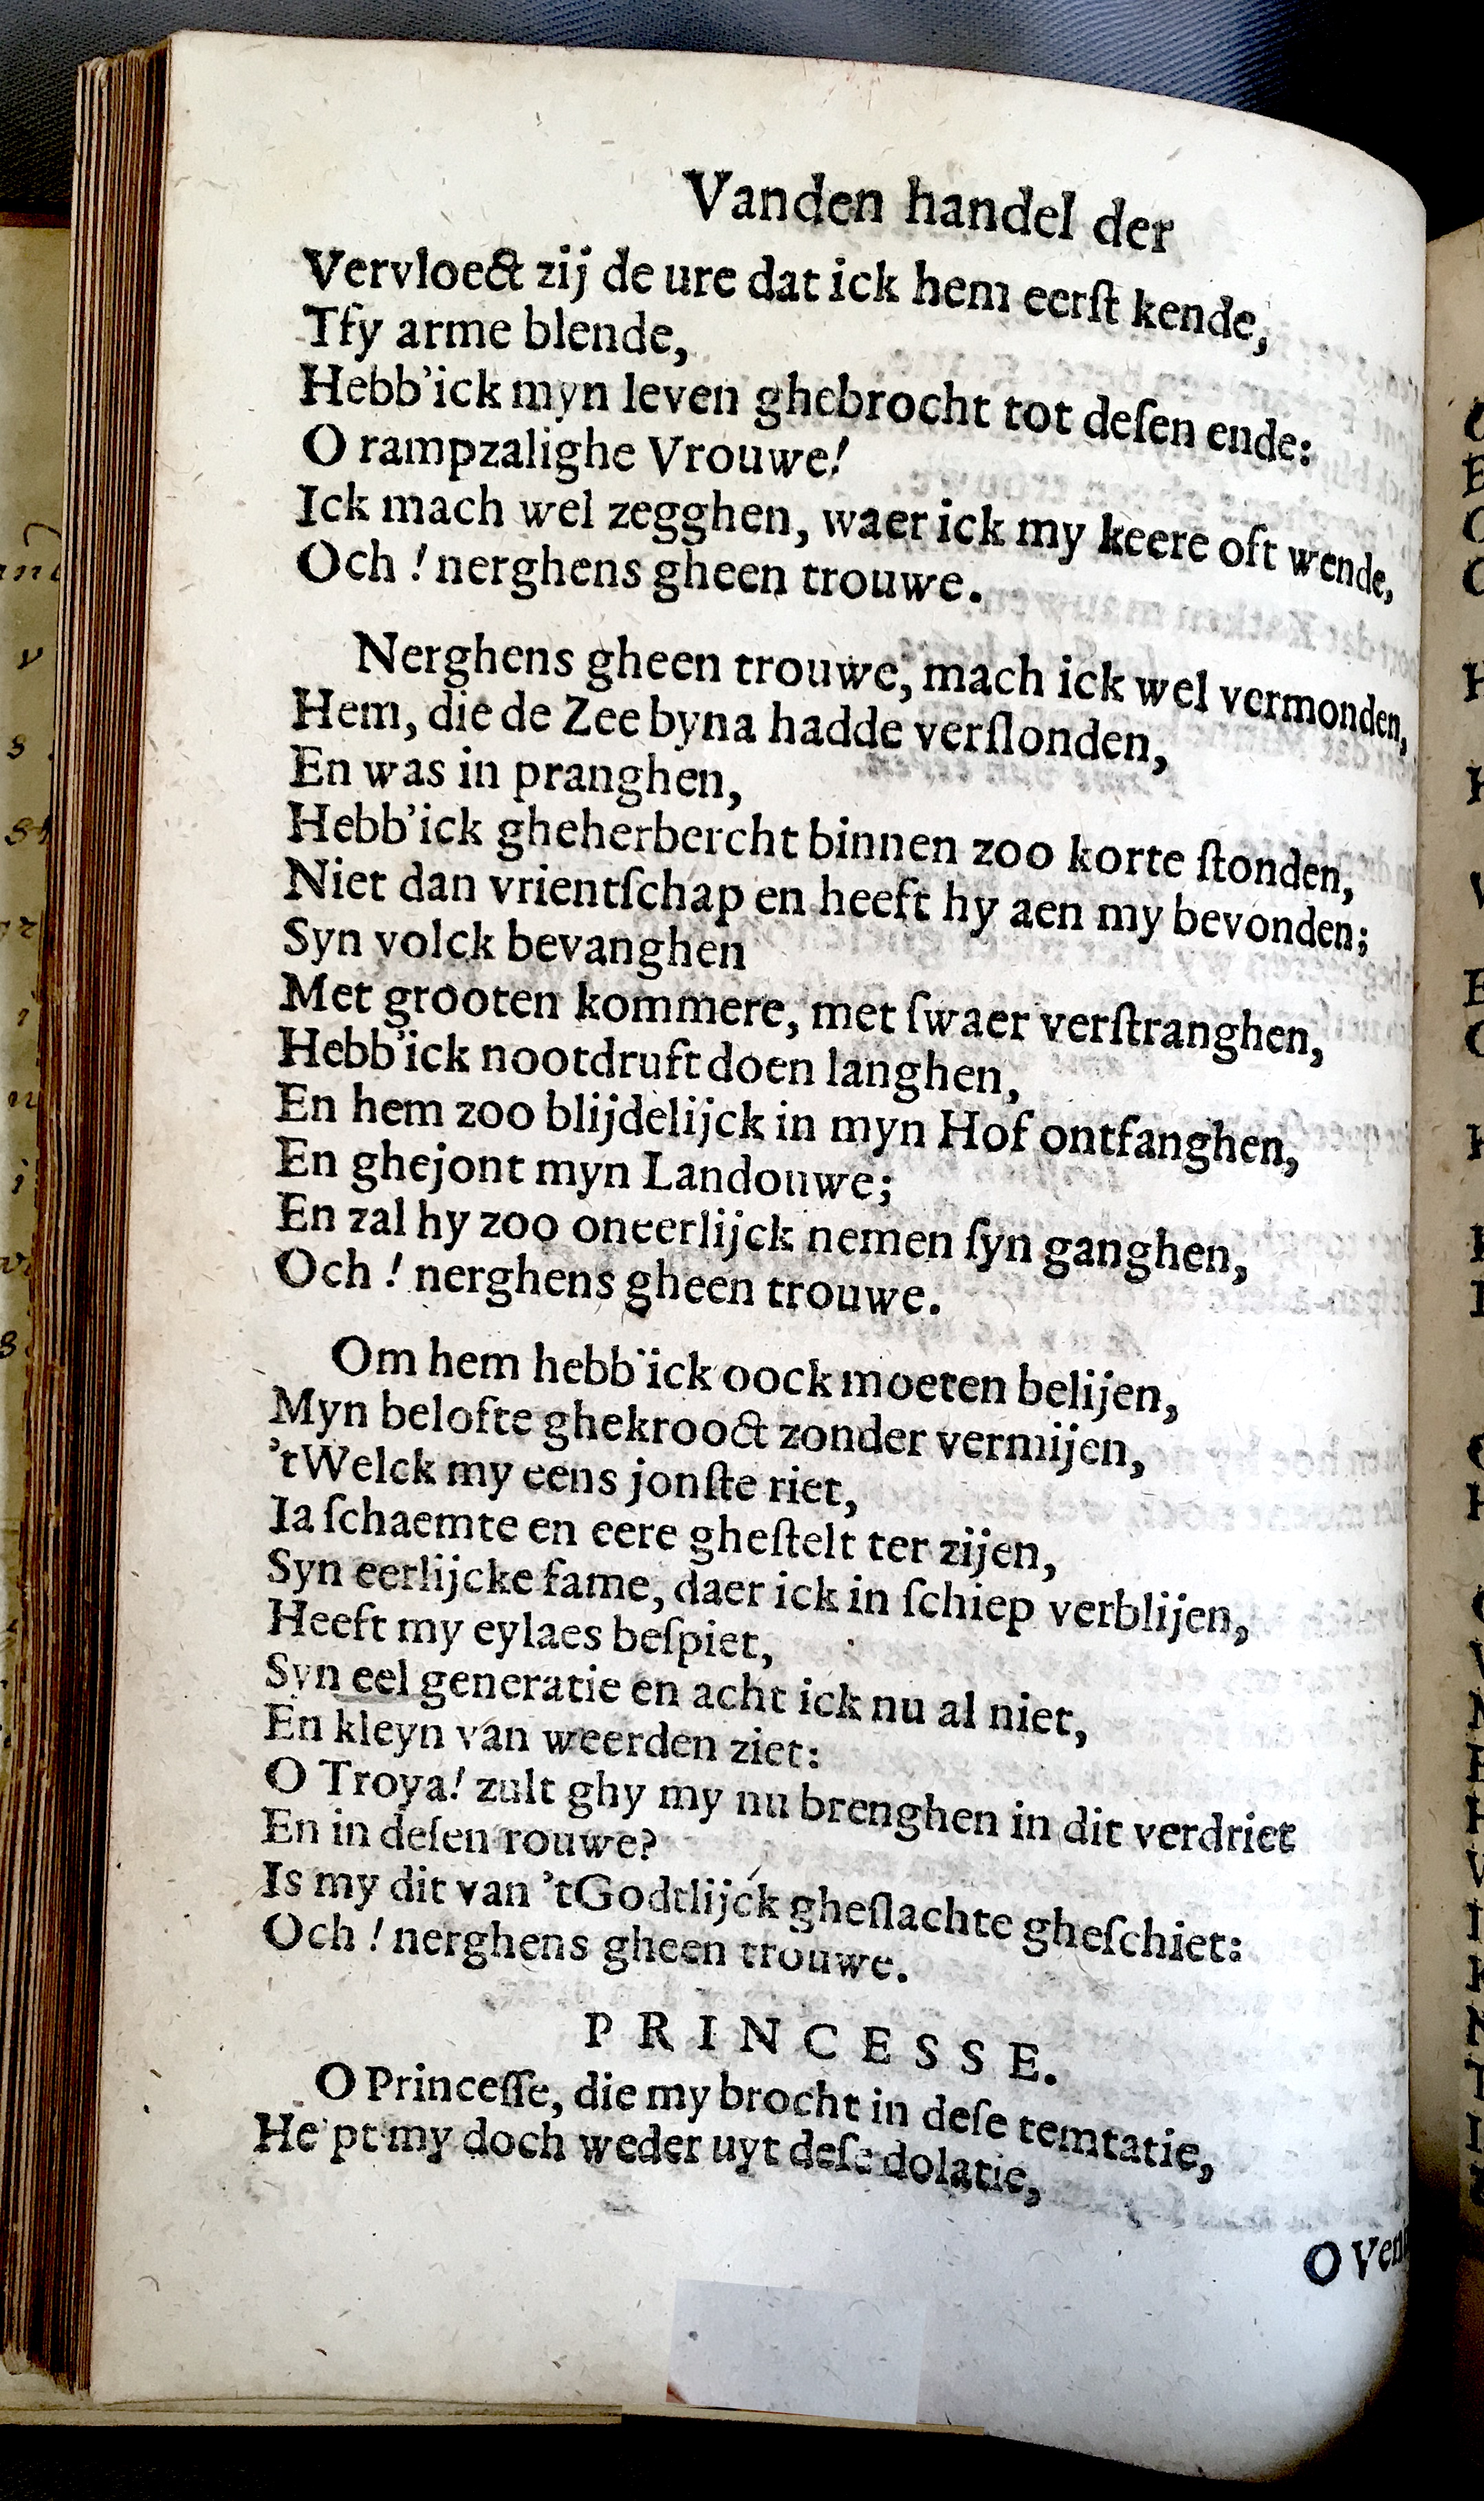 Vanden handel der
Vervloect zij de ure dat ick hem eerſt kende,
Tfy arme blende,
Hebb'ick myn leven ghebrocht tot deſen ende:
O rampzalighe Vrouwe!
Ick mach wel zegghen, waer ick my keere oft wende,
Och ! nerghens gheen trouwe.
Nerghens gheen trouwe, mach ick wel vermonden,
Hem, die de Zee byna hadde verſlonden,
En was in pranghen,
Hebb'ick gheherbercht binnen zoo korte ſtonden,
Niet dan vrientſchap en heeft hy aen my bevonden;
Syn volck bevanghen
Met grooten kommere, met ſwaer verſtranghen,
Hebb'ick nootdruft doen langhen,
En hem zoo blijdelijck in myn Hof ontfanghen,
En ghejont myn Landouwe;
En zal hy zoo oneerlijck nemen ſyn ganghen,
Och ! nerghens gheen trouwe.
Om hem hebb'ick oock moeten belijen,
Myn belofte ghekrooct zonder vermijen,
'tWelck my eens jonſte riet,
Ia ſchaemte en eere gheſtelt ter zijen,
Syn eerlijcke fame, daer ick in ſchiep verblijen,
Heeft my eylaes beſpiet,
Syn eel generatie en acht ick nu al niet,
En kleyn van weerden ziet:
O Troya! zult ghy my nu brenghen in dit verdriet
En in deſen rouwe?
Is my dit van 'tGodtlijck gheſlachte gheſchiet:
Och ! nerghens gheen trouwe.
PRINCESSE.
O Princeſſe, die my brocht in deſe temtatie,
He pt my doch weder uyt deſe dolatie,
O Ven